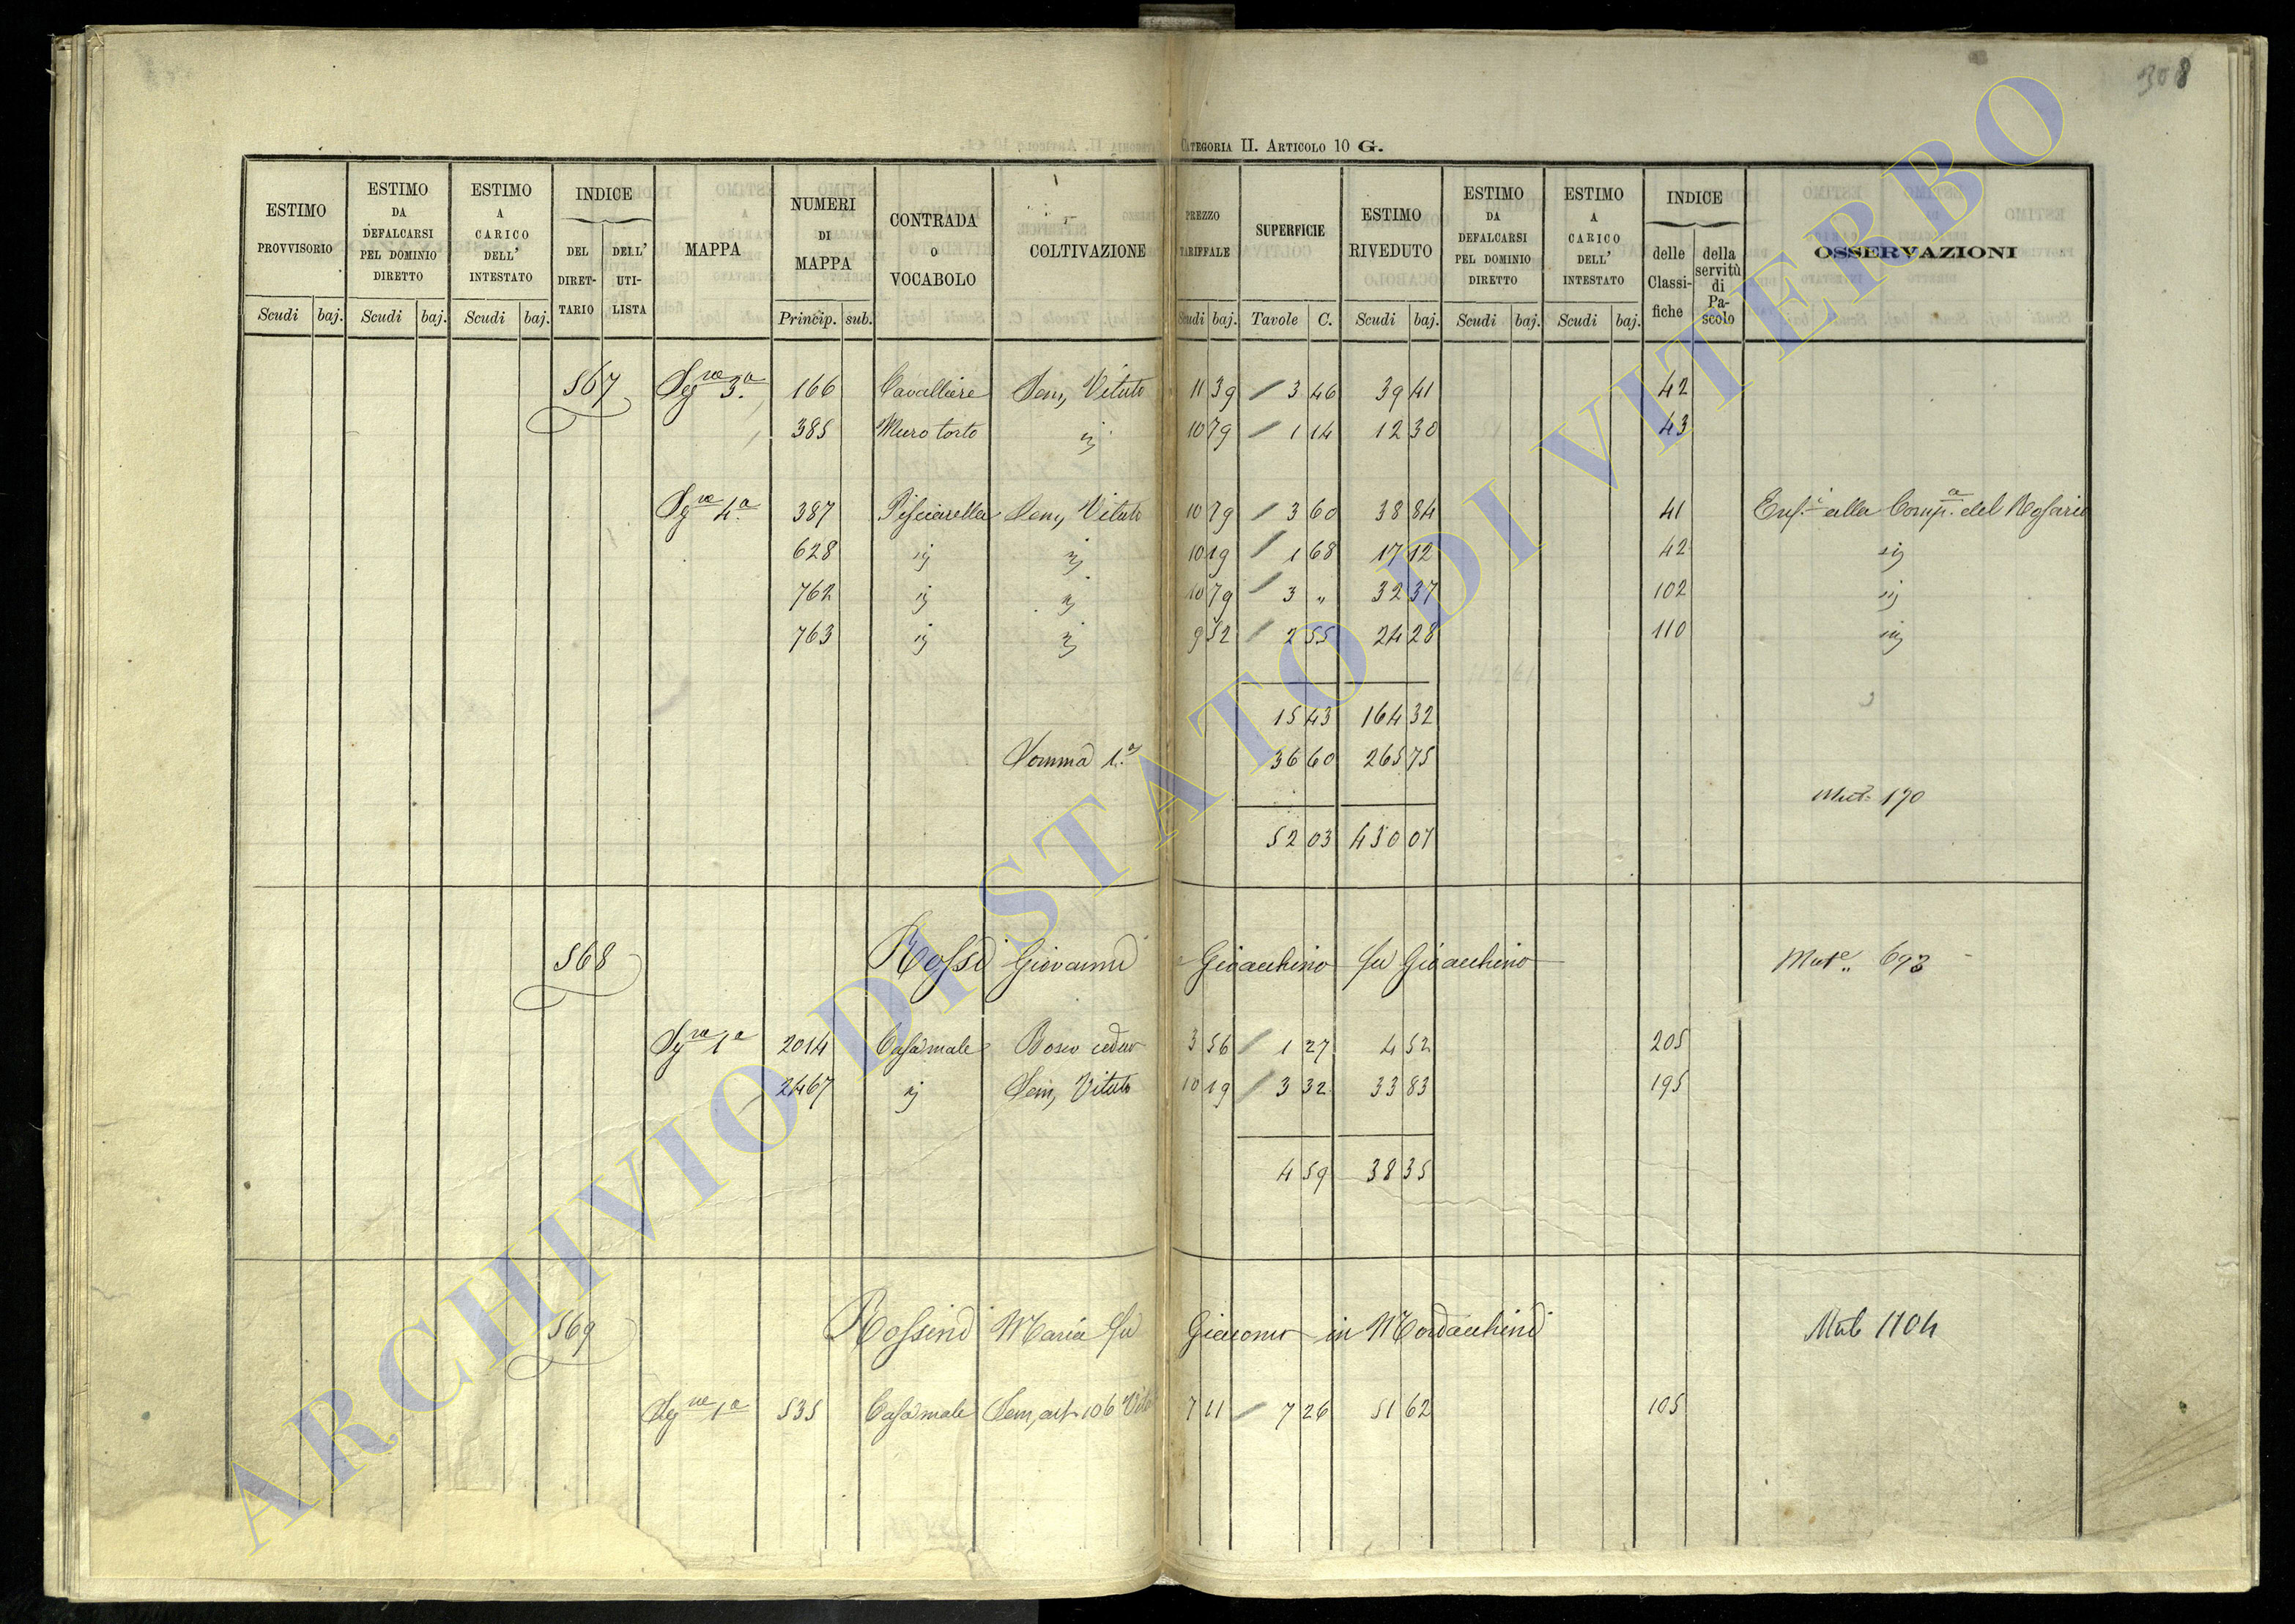 308
CATEGORIA II. ARTICOLO 10 G.
ESTIMO PROVVISORIO
ESTIMO DA DEFALCARSI PEL DOMINIO DIRETTO
ESTIMO A CARICO DELL' INTESTATO
INDICE
DEL DIRETTARIO
DELL' UTILISTA
MAPPA
NUMERI DI MAPPA
CONTRADA O VOCABOLO
COLTIVAZIONE
PREZZO TARIFFALE
SUPERFICIE
ESTIMO RIVEDUTO
ESTIMO DA DEFALCARSI PEL DOMINIO DIRETTO
ESTIMO A CARICO DELL' INTESTATO
INDICE
delle Classifiche
della servitù di Pascolo
OSSERVAZIONI
Scudi baj. Scudi baj. Scudi baj. Princip. sub. Scudi baj. Tavole C. Scudi baj. Scudi baj. Scudi baj.
567 Sgna 3a 166 Cavalliere Sem, Vitato 11 39 / 3 46 39 41 42
385 Muro torto ij 10 79 / 1 14 12 30 43
Sgna 4a 387 Pisciarella Sem, Vitato 10 79 / 3 60 38 84 41 Enf. alla Comp.a del Rosario
628 ij ij 10 19 / 1 68 17 12 42 ij
762 ij ij 10 79 / 3 „ 32 37 102 ij
763 ij ij 9 52 / 2 55 24 28 110 ij
15 43 164 32
Somma 1.a 36 60 265 75
Mut. 190
52 03 430 07
568 Rossi Giovanni e Gioacchino fu Gioacchino Mute 693
Sgna 1a 2014 Casamale Bosco ceduo 3 56 / 1 27 4 52 205
2467 ij Sem, Vitato 10 19 / 3 32 33 83 195
4 59 38 35
569 Rossini Maria fu Giacomo in Mordacchini Mut 1104
Sgna 1a 535 Casamale Sem, art 106 Vito 7 11 / 7 26 51 62 105
ARCHIVIO DI STATO DI VITERBO